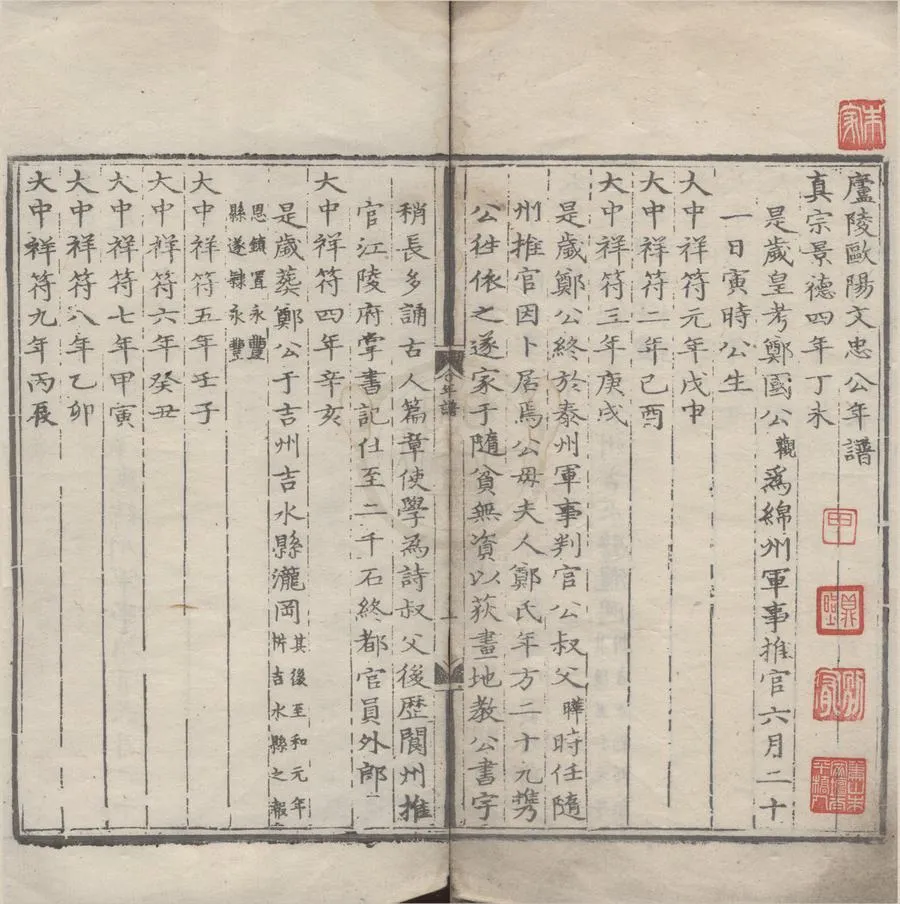 廬陵歐陽文忠公年譜
真宗景德四年丁未
是歲皇考鄭國公觀為綿州軍事推官六月二十
一日寅時公生
大中祥符元年戊申
大中祥符二年己酉
大中祥符三年庚戌
是歲鄭公終於泰州軍事判官公叔父曄時任隨
州推官因卜居焉公母夫人鄭氏年方二十九携
公往依之遂家于隨貧無資以荻畫地教公書字
年譜
一
稍長多誦古人篇章使學為詩叔父後歷閬州推
官江陵府掌書記仕至二千石終都官員外郎
大中祥符四年辛亥
是歲葬鄭公于吉州吉水縣瀧岡其後至和元年
㭊吉水縣之報
恩鎮置永豐
縣遂隸永豐
大中祥符五年壬子
大中祥符六年癸丑
大中祥符七年甲寅
大中祥符八年乙卯
大中祥符九年丙辰
朱家
甲